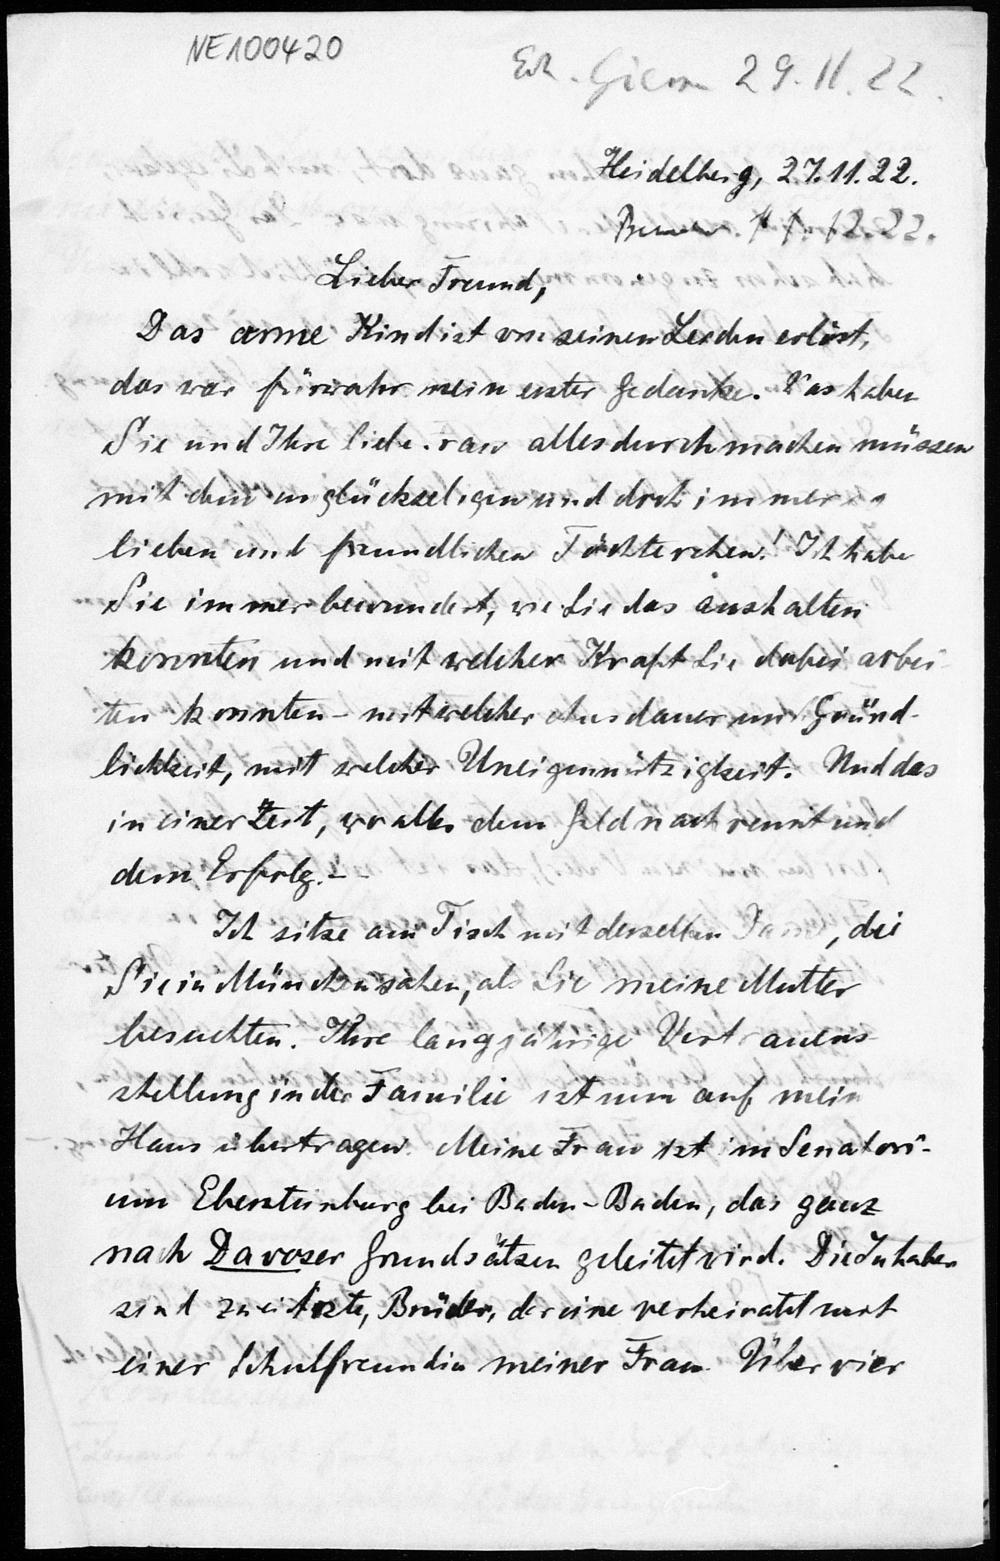 NE100420
29.11.22.
Heidelberg, 27.11.22.
12.22.
Lieber Freund,
Das arme Kind ist von seinen Leiden erlöst,
das war fürwahr mein erster Gedanke. Was haben
Sie und Ihre liebe Frau alles durchmachen müssen
mit dem unglückseligen und doch immer so
lieben und freundlichen Töchterchen! Ich habe
Sie immer bewundert, wie Sie das aushalten
konnten und mit welcher Kraft Sie dabei arbei-
ten konnten – mit welcher Ausdauer und Gründ-
lichkeit, mit welcher Uneigennützigkeit. Und das
in einer Zeit, wo alles dem Geld nach rennt und
dem Erfolg. –
Ich sitze am Tisch mit derselben Dame, die
Sie in München sahen, als Sie meine Mutter
besuchten. Ihre langjährige Vertrauens-
stellung in der Familie ist nun auf mein
Haus übertragen. Meine Frau ist im Senatori-
um Ebersteinburg bei Baden-Baden, das ganz
nach Davoser Grundsätzen geleitet wird. Die Inhaber
sind zwei Ärzte, Brüder, der eine verheiratet mit
einer Schulfreundin meiner Frau. Über vier